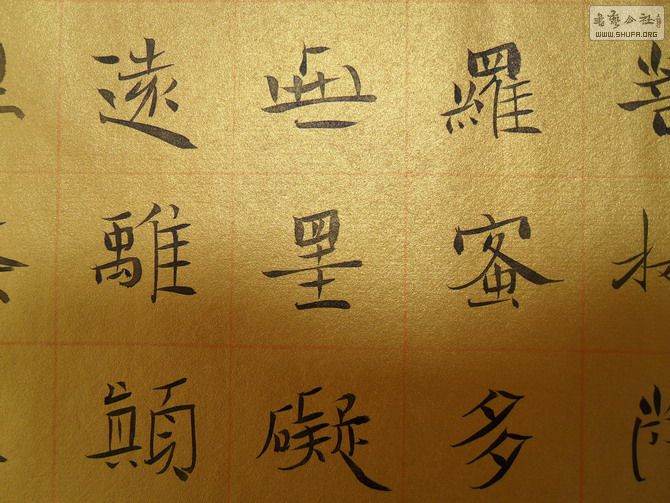 羅蜜多
無罣礙
遠離顛
書藝公社
WWW.SHUFA.ORG